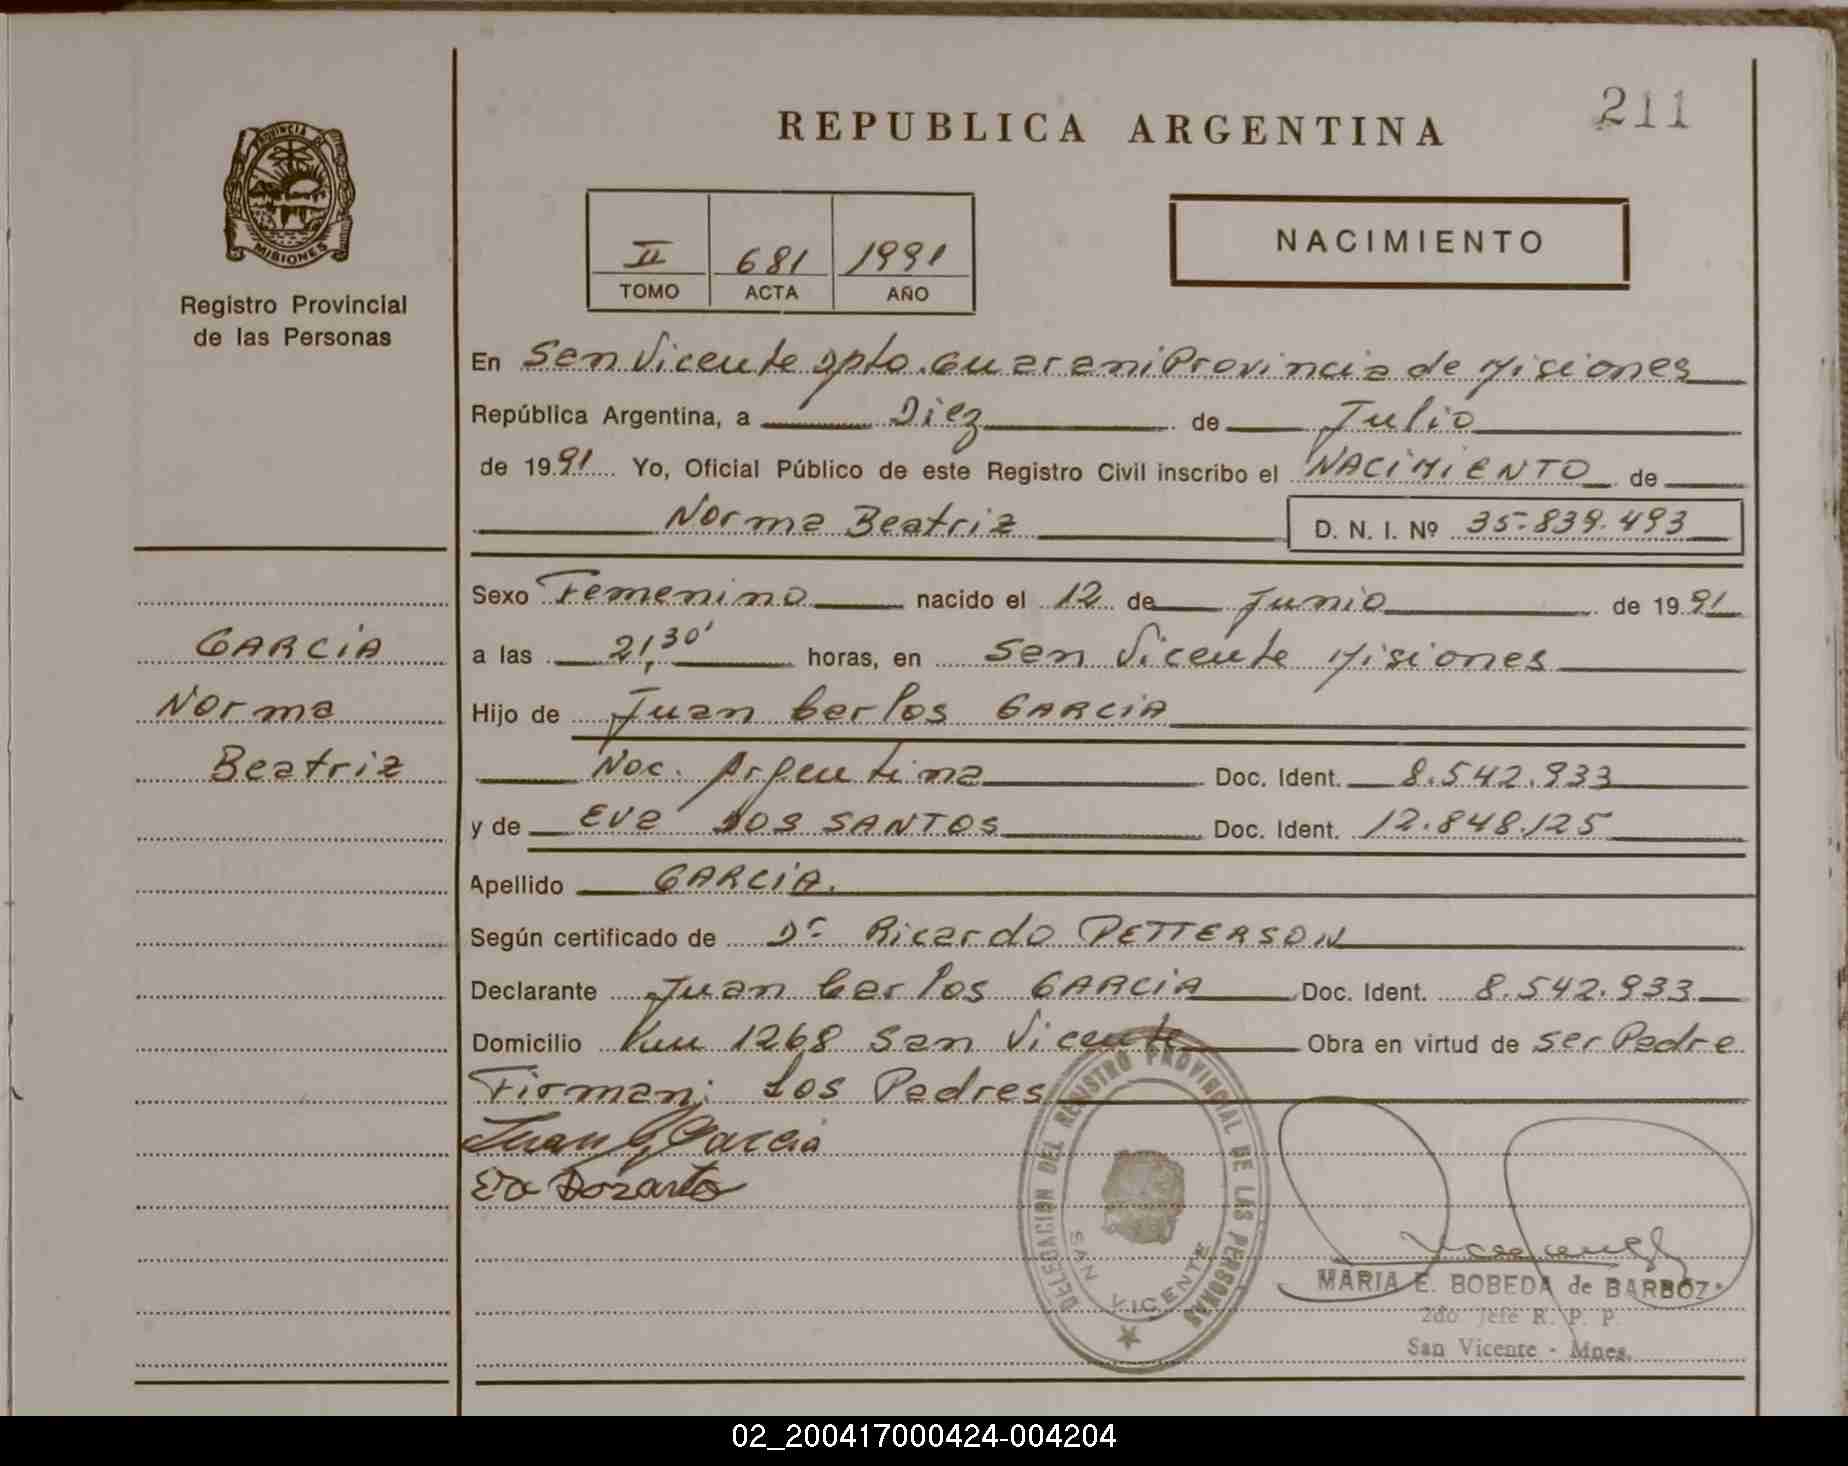 211
REPUBLICA ARGENTINA
PROVINCIA D
MISIONES
Registro Provincial
de las Personas
II 681 1991
TOMO ACTA AÑO
NACIMIENTO
En San Vicente Dpto. Guarani Provincia de Misiones
República Argentina, a Diez de Julio
de 1991 Yo, Oficial Público de este Registro Civil inscribo el NACIMIENTO de
Norma Beatriz D. N. I. Nº 35.839.493
Sexo Femenino nacido el 12 de Junio de 1991
a las 21,30' horas, en San Vicente Misiones
Hijo de Juan Carlos GARCIA
Nac. Argentina Doc. Ident. 8.542.933
y de Eva DOS SANTOS Doc. Ident. 12.848.125
Apellido GARCIA.
Según certificado de Dr Ricardo PETTERSON
Declarante Juan Carlos GARCIA Doc. Ident. 8.542.933
Domicilio Km 1268 San Vicente Obra en virtud de ser Padre
Firman: Los Padres
GARCIA
Norma
Beatriz
Juan C Garcia
DELEGACION DEL REGISTRO PROVINCIAL DE LAS PERSONAS
SAN VICENTE
MARIA E. BOBEDA de BARBOZ
2do Jefe R. P. P.
San Vicente - Mnes.
02_200417000424-004204